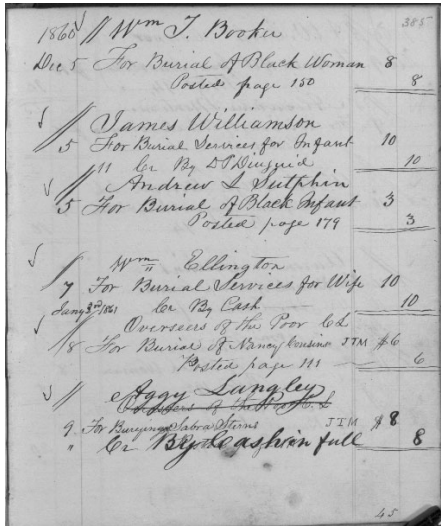 385
1860 // Wm T. Booker
Dec 5 For Burial of Black Woman 8
Posted page 150 8
// James Williamson
5 For Burial Services for Infant 10
" Cr By D P Diuguid 10
// Andrew L Sutphin
5 For Burial of Black Infant 3
Posted page 179 3
// Wm Ellington
7 For Burial Services for Wife 10
Jany 3rd 1861 Cr By Cash 10
// Overseers of the Poor
8 For Burial of Nancy Cousins JTM $6
Posted page 111 6
// Aggy Langley
Overseers of the Poor
9 For Burying Sabra Sterns JTM $8
" Cr By Cash in full 8
45